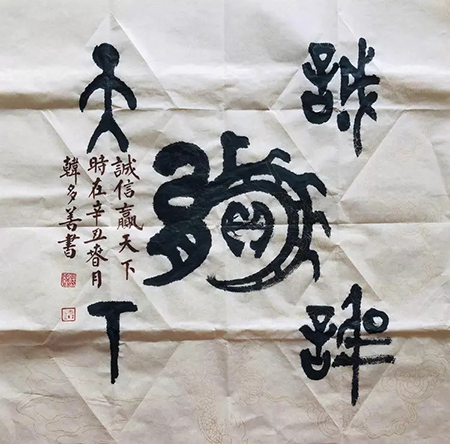 誠信
贏
天下
誠信贏天下
時在辛丑春月
韓多善書